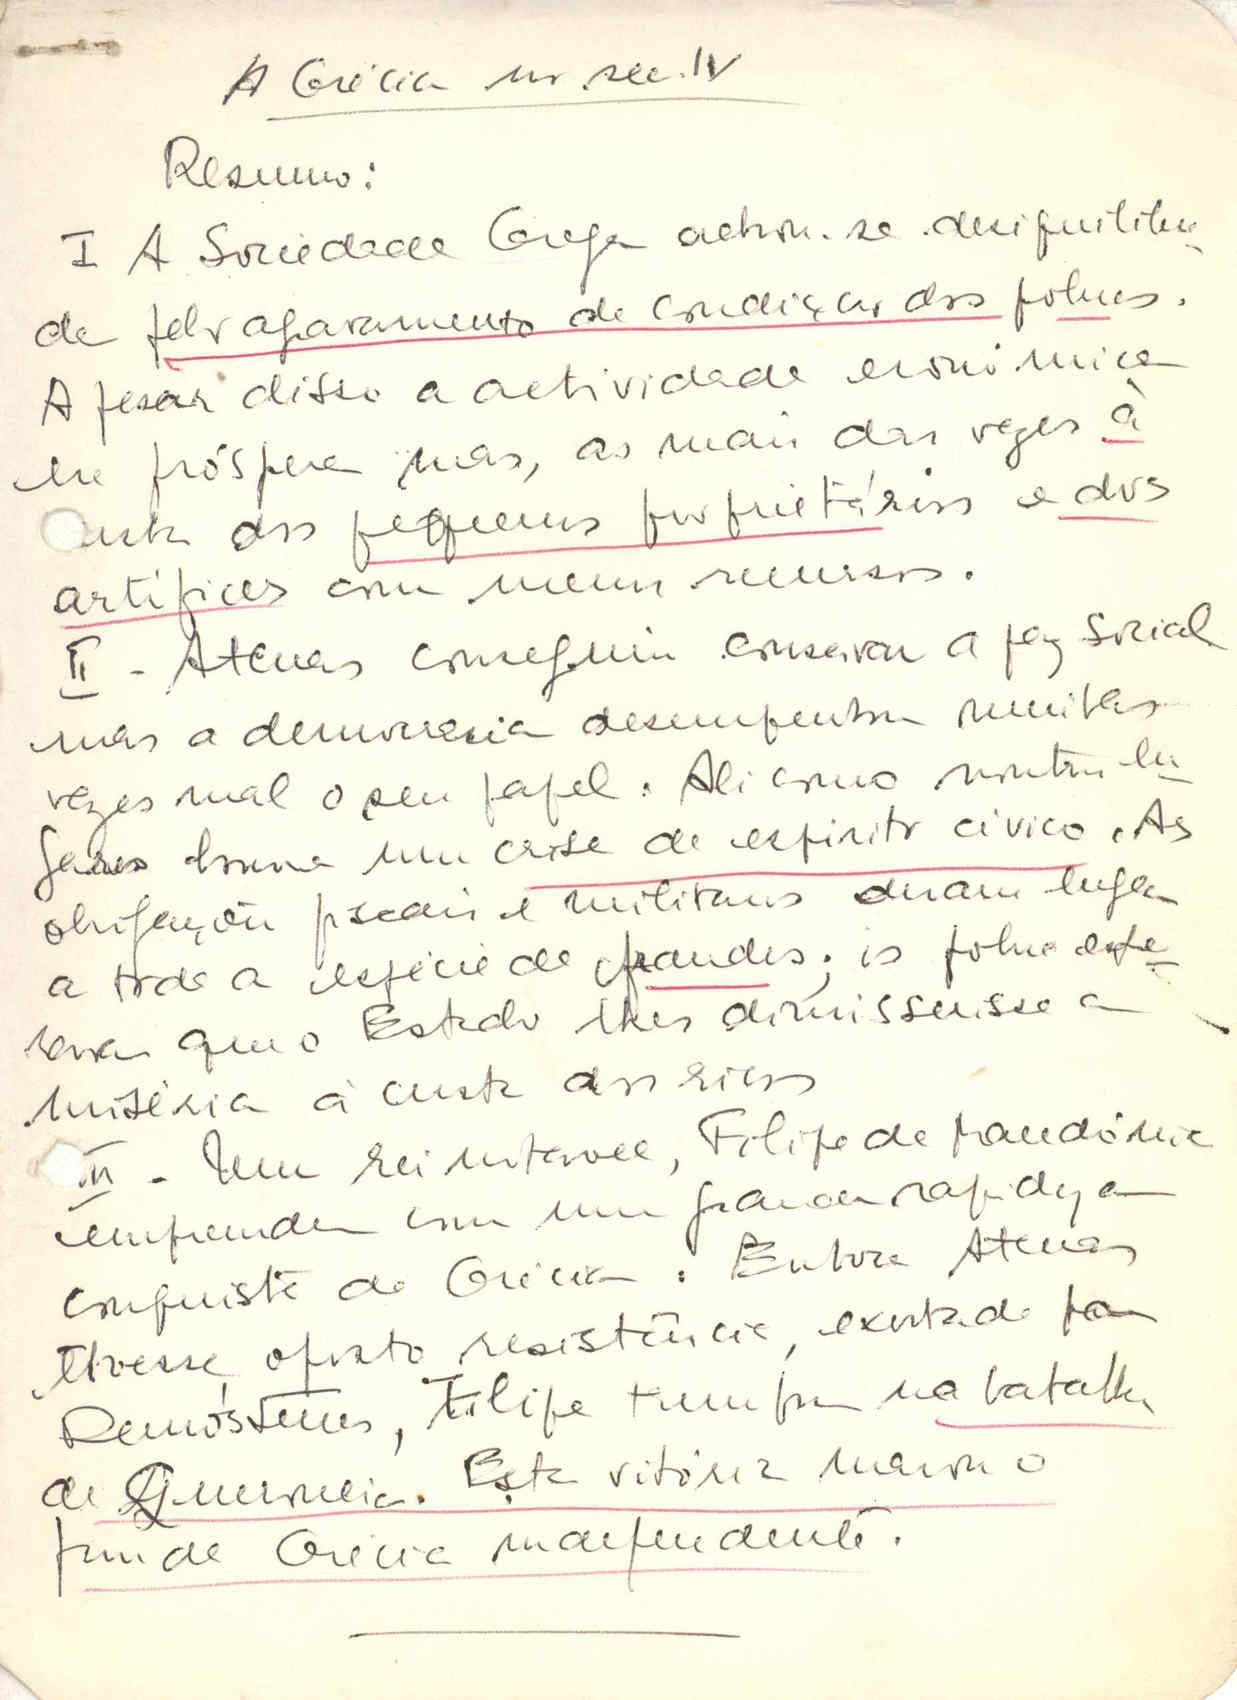 A Grécia no sec. IV
Resumo:
I A Sociedade Grega achou-se desiquilibra
da pelo agravamento de condições dos pobres.
Apesar disso a actividade económica
era próspera mas, as mais das vezes à
custa dos pequenos proprietários e dos
artífices com menos recursos.
II - Atenas conseguiu conservar a paz Social
mas a democracia desempenhou muitas
vezes mal o seu papel. Ali como noutros lu
gares houve uma crise de espírito cívico. As
obrigações fiscais e militares deram lugar
a toda a espécie de fraudes; os pobres espe
ravam que o Estado lhes diminuisse a
miséria à custa dos ricos
III - Um rei, Filipe de Macedónia
empreendeu com uma grande rapidez a
conquista da Grécia. Embora Atenas
tivesse oposto resistência, exortada por
Demóstenes, Filipe triunfou na batalha
de Queroneia. Esta vitória marcou o
fim da Grécia independente.